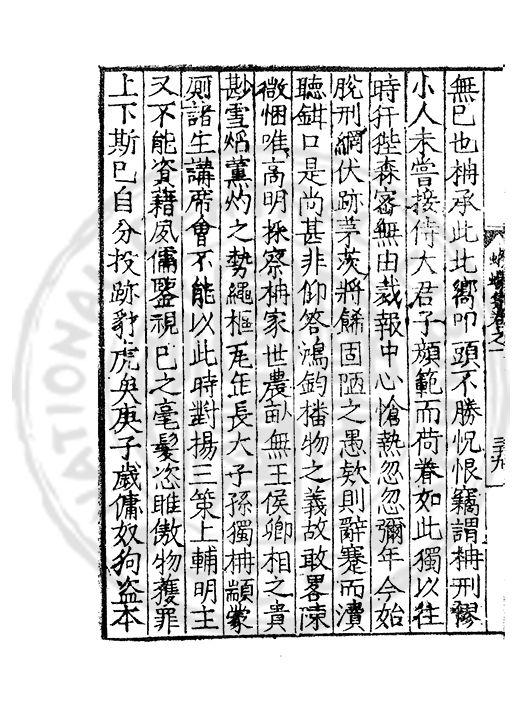 無已也柟承此北嚮叩頭不勝怳恨竊謂柟刑僇
小人未嘗接侍大君子顏範而荷眷如此獨以往
時犴狴森審無由裁報中心愴熱忽忽彌年今始
脫刑網伏跡茅茨將餙固陋之愚欵則辭蹇而瀆
聽鉗口是尚甚非仰答鴻鈞播物之義故敢畧陳
微悃唯高明採察柟家世農畝無王侯卿相之貴
尠雪焰薰灼之勢繩樞瓦年長大子孫獨柟顓蒙
厠諸生講席會不能以此時對揚三策上輔明主
又不能資藉夙儒監視巳之毫髮恣睢傲物獲罪
上下斯巳自分投跡豺虎矣庚子歲傭奴狗盜本
蠛蠓集卷之一
三十九